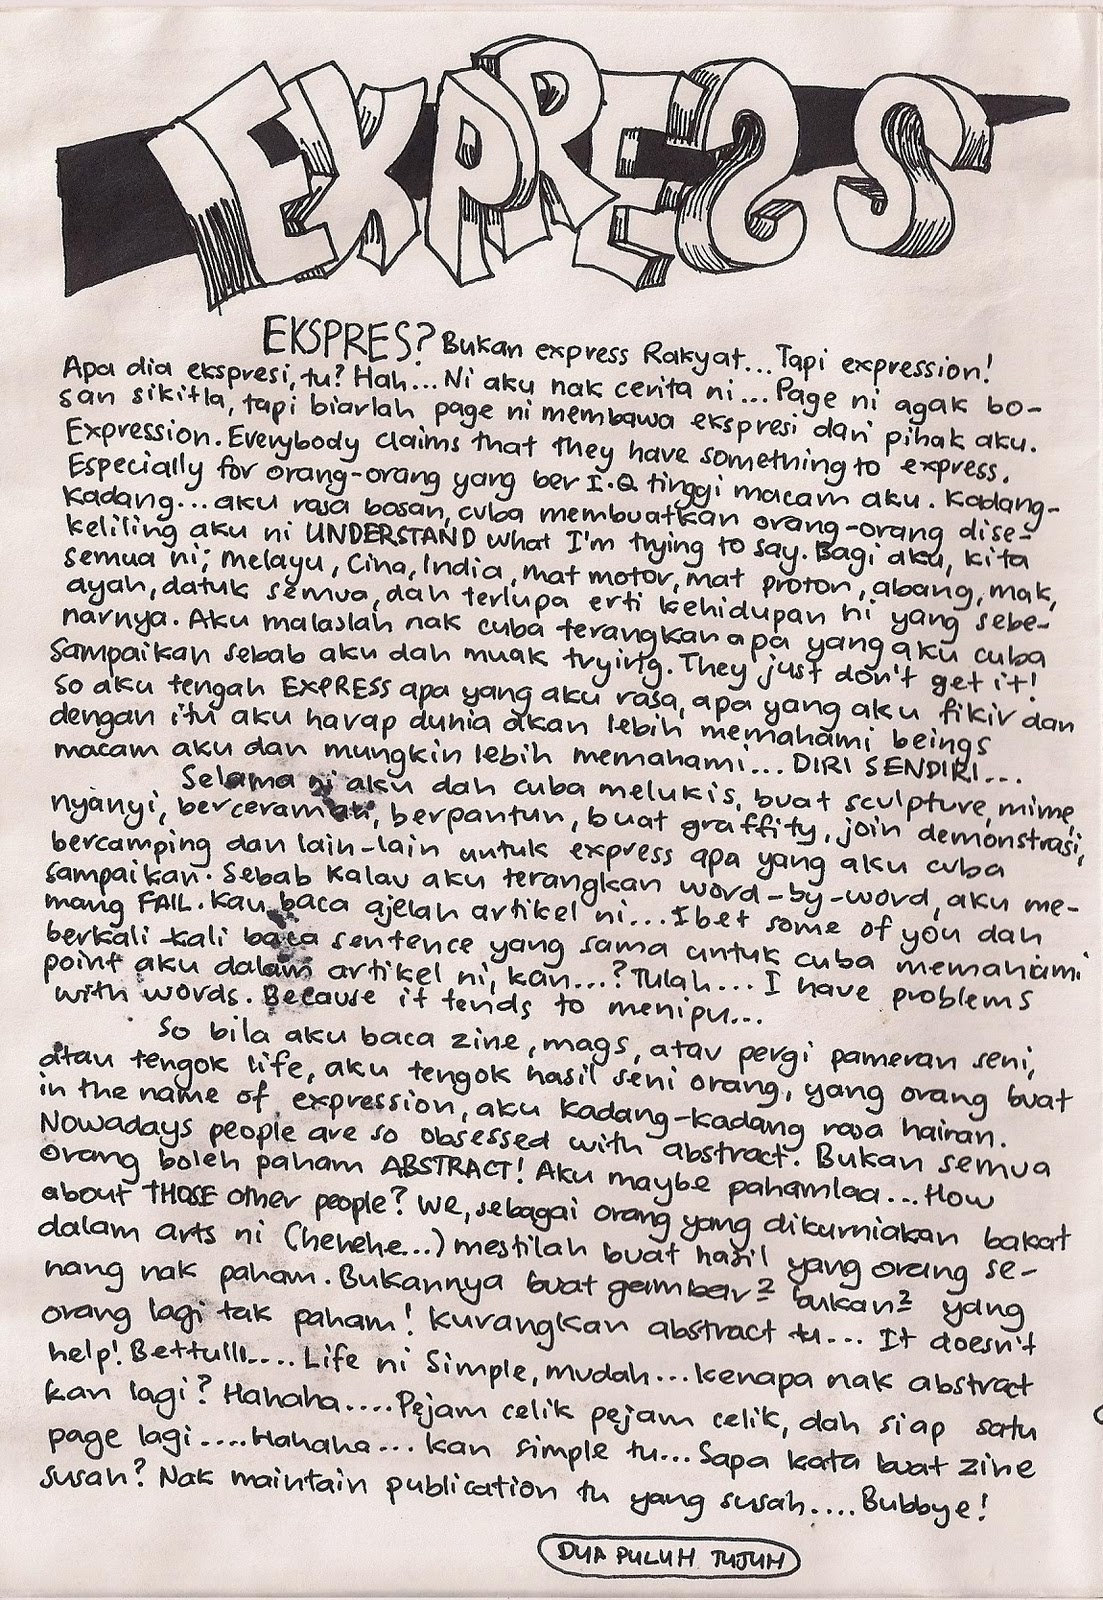 EXPRESS
EKSPRES? Bukan express Rakyat... Tapi expression!
Apa dia ekspresi, tu? Hah... Ni aku nak cerita ni... Page ni agak bo-
san sikitla, tapi biarlah page ni membawa ekspresi dari pihak aku.
Expression. Everybody claims that they have something to express.
Especially for orang-orang yang ber I.Q tinggi macam aku. Kadang-
kadang... aku rasa bosan, cuba membuatkan orang-orang dise-
keliling aku ni UNDERSTAND what I'm trying to say. Bagi aku, kita
semua ni; melayu, Cina, India, mat motor, mat proton, abang, mak,
ayah, datuk semua, dah terlupa erti kehidupan ni yang sebe-
narnya. Aku malaslah nak cuba terangkan apa yang aku cuba
sampaikan sebab aku dah muak trying. They just don't get it!
So aku tengah EXPRESS apa yang aku rasa, apa yang aku fikir dan
dengan itu aku harap dunia akan lebih memahami beings
macam aku dan mungkin lebih memahami... DIRI SENDIRI...
Selama ni aku dah cuba melukis, buat sculpture, mime,
nyanyi, berceramah, berpantun, buat graffity, join demonstrasi,
bercamping dan lain-lain untuk express apa yang aku cuba
sampaikan. Sebab kalau aku terangkan word-by-word, aku me-
mang FAIL. Kau baca ajelah artikel ni... I bet some of you dah
berkali-kali baca sentence yang sama untuk cuba memahami
point aku dalam artikel ni, kan...? Tulah... I have problems
with words. Because it tends to menipu...
So bila aku baca zine, mags, atau pergi pameran seni,
atau tengok life, aku tengok hasil seni orang, yang orang buat
in the name of expression, aku kadang-kadang rasa hairan.
Nowadays people are so obsessed with abstract. Bukan semua
orang boleh paham ABSTRACT! Aku maybe pahamlaa... How
about THOSE other people? We, sebagai orang yang dikurniakan bakat
dalam arts ni (hehehe...) mestilah buat hasil yang orang se-
nang nak paham. Bukannya buat gambar2 bukan2 yang
orang lagi tak paham! Kurangkan abstract tu... It doesn't
help! Bettulll.... Life ni simple, mudah... kenapa nak abstract
kan lagi? Hahaha.... Pejam celik pejam celik, dah siap satu
page lagi.... Hahaha... kan simple tu... Sapa kata buat zine
susah? Nak maintain publication tu yang susah.... Bubbye!
DUA PULUH TUJUH